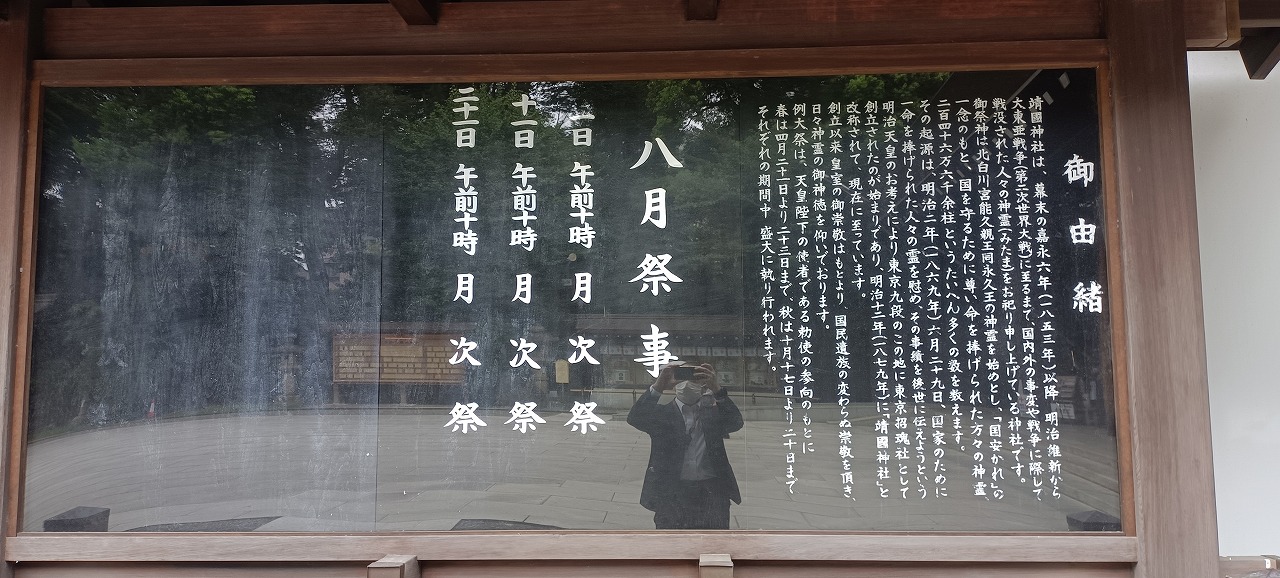 御由緒
靖國神社は、幕末の嘉永六年（一八五三年）以降、明治維新から
大東亜戦争（第二次世界大戦）に至るまで、国内外の事変や戦争に際して
戦没された人々の神霊（みたま）をお祀り申し上げている神社です。
御祭神は北白川宮能久親王同永久王の神霊を始めとし、「国安かれ」の
一念のもと、国を守るために尊い命を捧げられた方々の神霊、
二百四十六万六千余柱というたいへん多くの数を数えます。
その起源は、明治二年（一八六九年）六月二十九日、国家のために
一命を捧げられた人々の霊を慰め、その事績を後世に伝えようという
明治天皇のお考えにより東京九段のこの地に東京招魂社として
創立されたのが始まりであり、明治十二年（一八七九年）に「靖國神社」と
改称されて、現在に至っています。
創立以来、皇室の御崇敬はもとより、国民遺族の変わらぬ崇敬を頂き、
日々神霊の御神徳を仰いでおります。
例大祭は、天皇陛下の使者である勅使の参向のもとに
春は四月二十一日より二十三日まで、秋は十月十七日より二十日まで
それぞれの期間中 盛大に執り行われます。
八月祭事
一日 午前十時 月次祭
十一日 午前十時 月次祭
二十一日 午前十時 月次祭